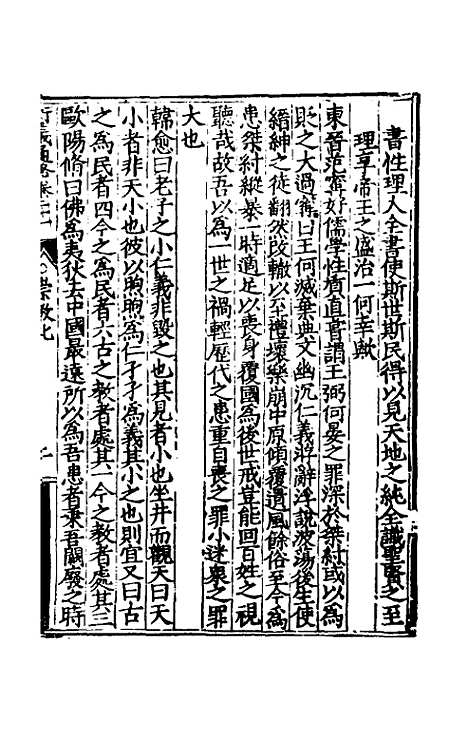 書性理人全書使斯世斯民得以見天地之純全識聖賢之至
理享帝王之盛治一何幸歟
東晉范甯好儒學性質直嘗謂王弼何晏之罪深於桀紂或以為
貶之大過甯曰王何滅棄典文幽沉仁義游辭浮說波蕩後生使
縉紳之徒翻然改轍以至禮壞樂崩中原傾覆遺風餘俗至今為
患桀紂縱暴一時適足以喪身覆國為後世戒豈能回百姓之視
聽哉故吾以為一世之禍輕歷代之患重自喪之罪小迷眾之罪
大也
韓愈曰老子之小仁義非毀之也其見者小也坐井而觀天曰天
小者非天小也彼以煦煦為仁孑孑為義其小之也則宜又曰古
之為民者四今之為民者六古之教者處其一今之教者處其三
歐陽脩曰佛為夷狄去中國最遠所以為吾患者乗吾闕廢之時
崇敎七